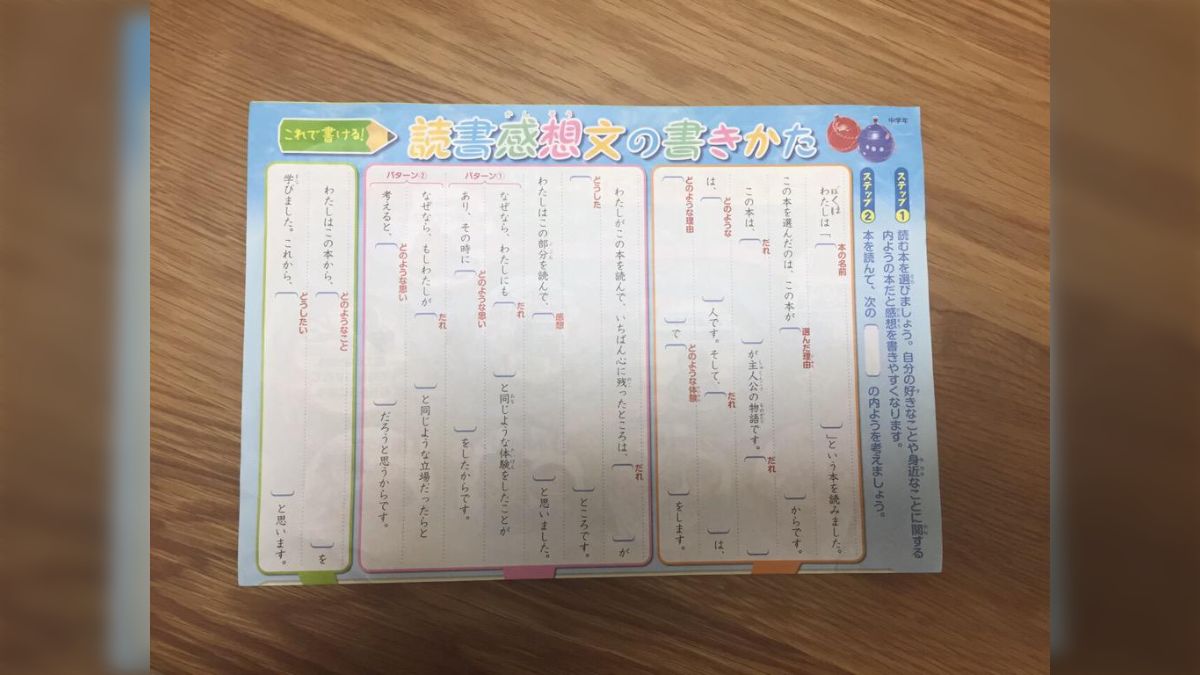 これで書ける!
読書感想文の書きかた
かんそう
中学年
ステップ1
読む本を選びましょう。自分の好きなことや身近なことに関する
内ようの本だと感想を書きやすくなります。
ステップ2
本を読んで、次の の内ようを考えましょう。
ぼくは
わたしは「 」という本を読みました。
本の名前
この本を選んだのは、この本が からです。
選んだ理由
この本は、 が主人公の物語です。 は、
だれ
だれ
は、 人です。そして、 は、
どのような
だれ
で をします。
どのような理由
どのような体験
わたしがこの本を読んで、いちばん心に残ったところは、 が
だれ
ところです。
どうした
わたしはこの部分を読んで、 と思いました。
感想
パターン①
なぜなら、わたしにも と同じような体験をしたことが
だれ
あり、その時に をしたからです。
どのような思い
パターン②
なぜなら、もしわたしが と同じような立場だったらと
だれ
考えると、 だろうと思うからです。
どのような思い
わたしはこの本から、 を
どのようなこと
学びました。これから、 と思います。
どうしたい